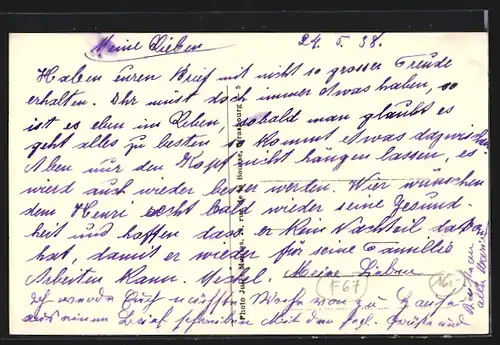 Meine Lieben
24. 5. 38.
Haben euren Brief mit nicht so grosser Freude
erhalten. Ihr müst doch immer etwas haben, so
ist es eben im Leben, sobald man glaubt es
geht alles zu besten so kommt etwas dazwischen
Aben nur den Kopf nicht hängen lassen, es
wierd auch wieder besser werten. Wier wünschen
dem Henri recht bald wieder seine Gesund-
heit und hoffen dass er kein Nachteil dafon
hat, damit er wieder für seine Familie
Arbeiten kann. Meine Lieben
Ich werde Euch nächste Woche von zu Hause
aus einen Brief schreiben Mit den hzl. Grüße und
alle
Photo Jules
Strasbourg
F67
16.-